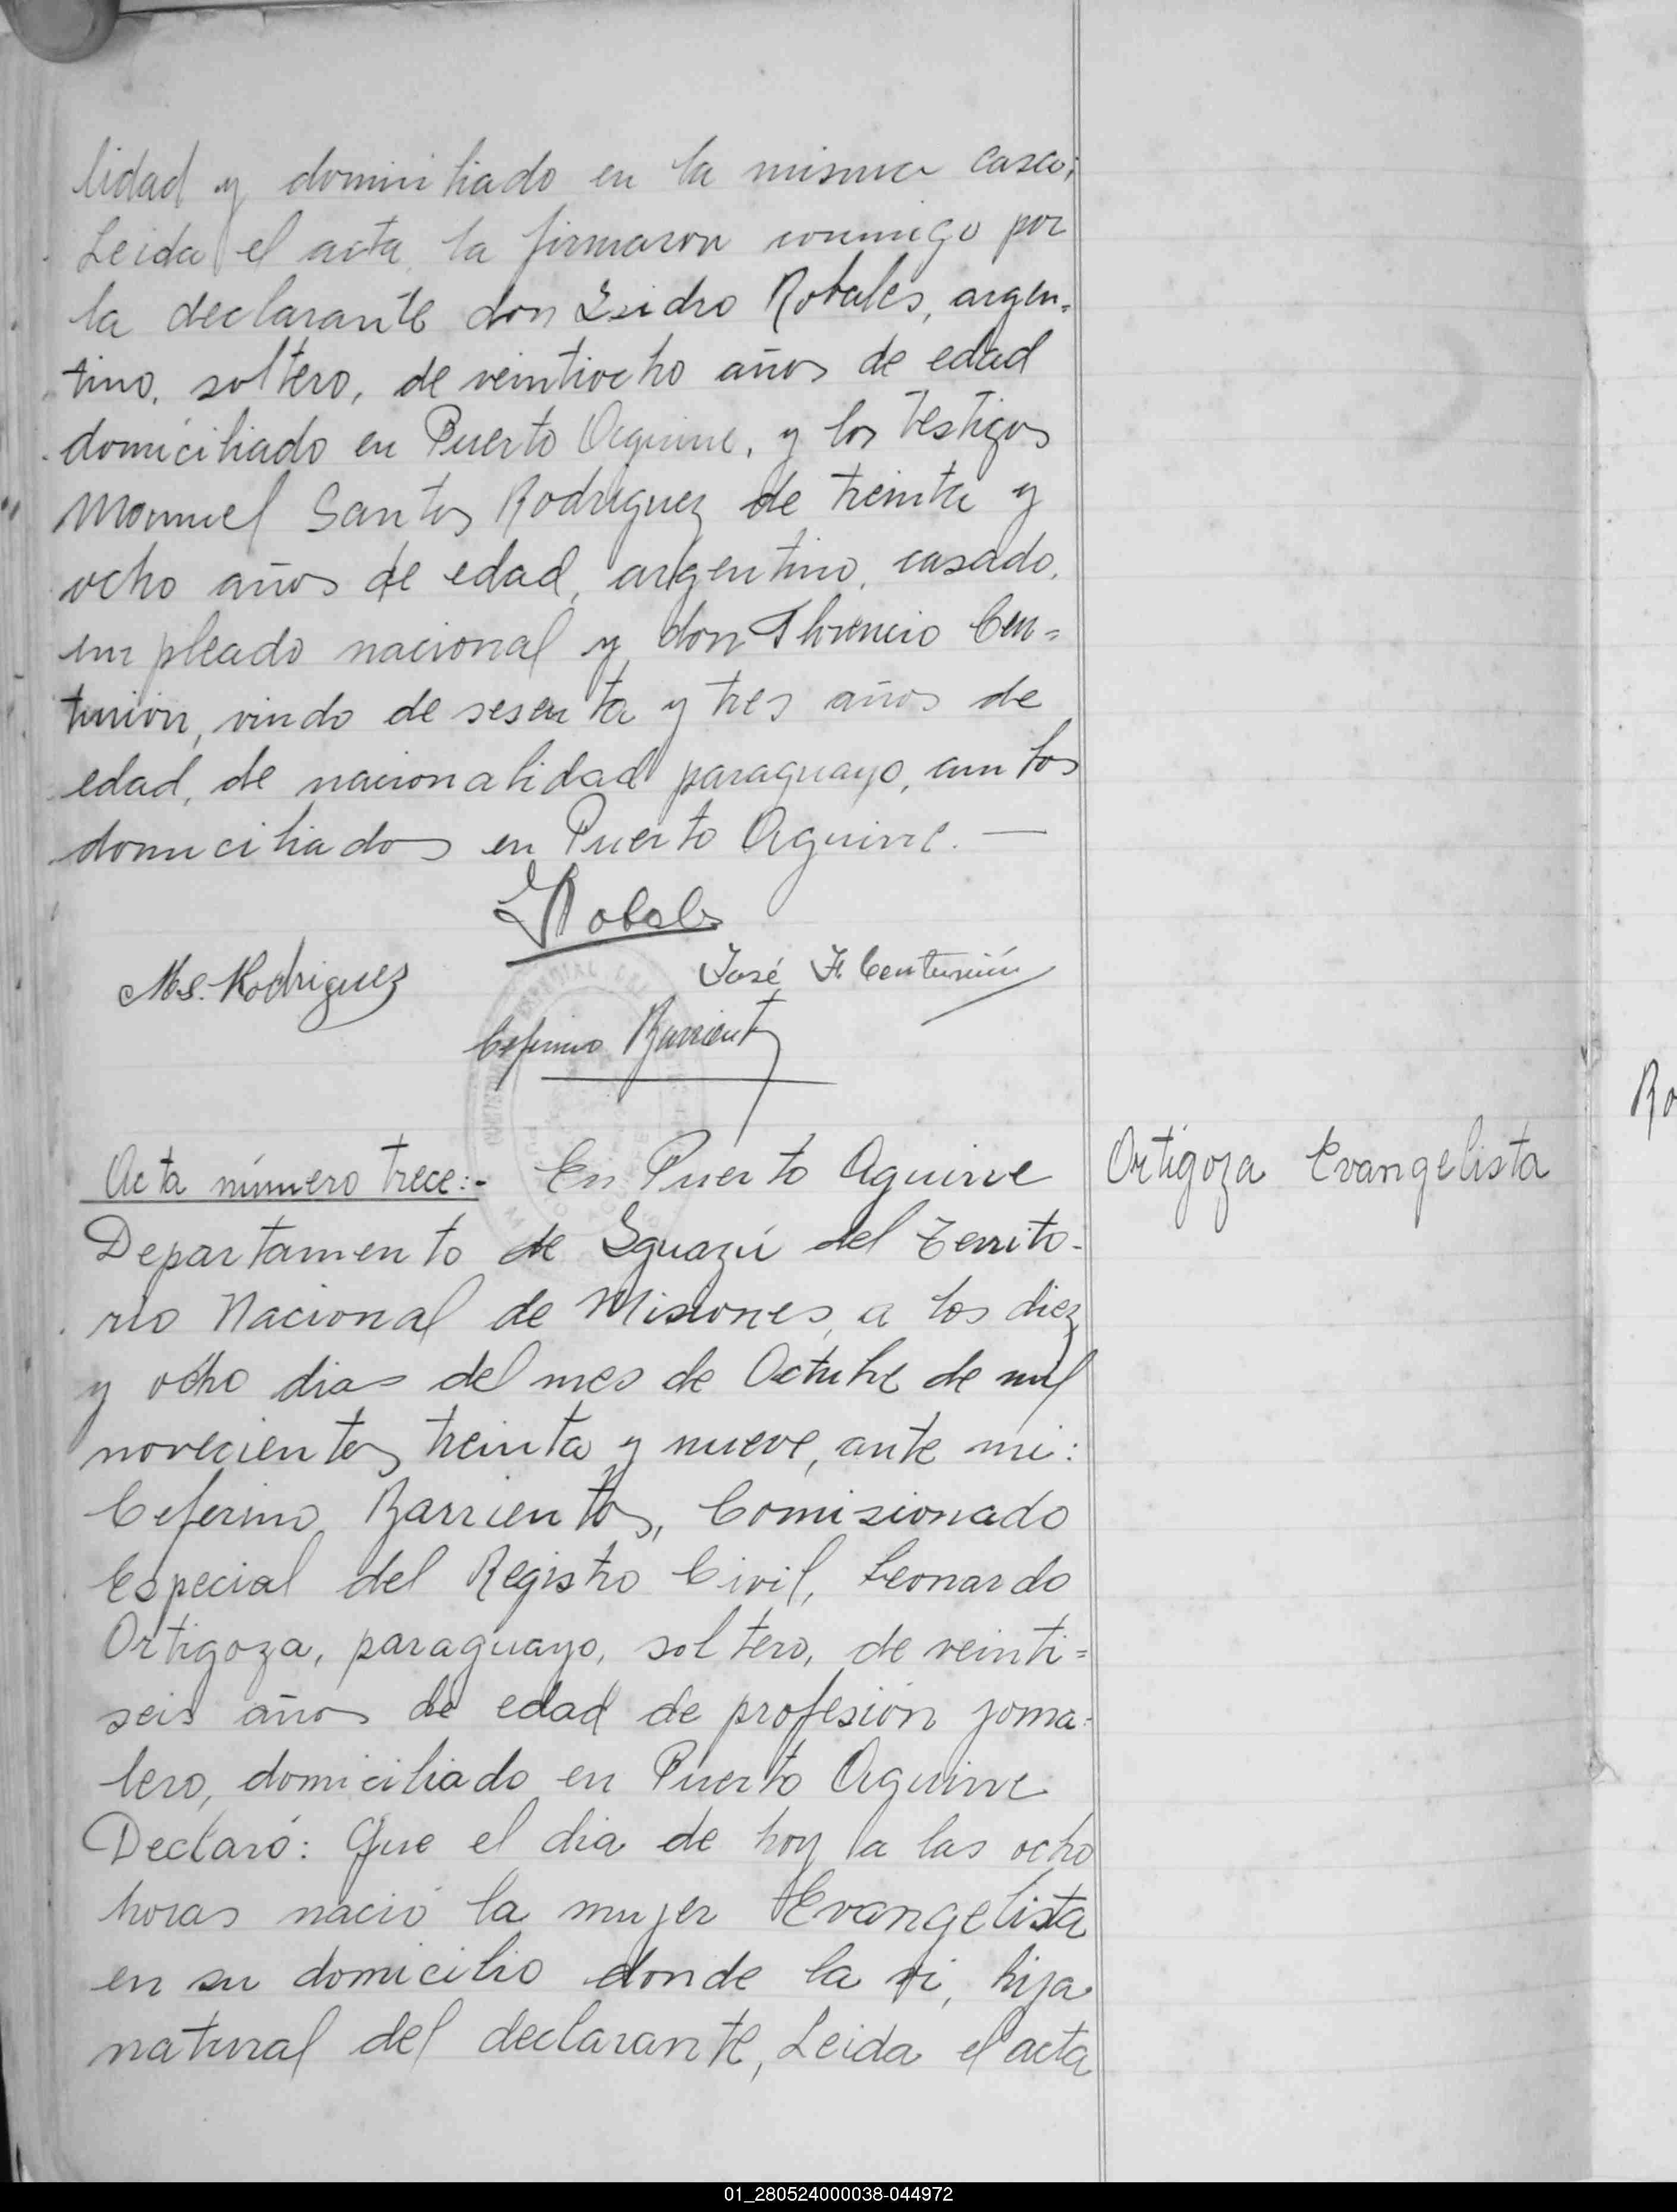 lidad y domiciliado en la misma casa;
Leida el acta la firmaron conmigo por
la declarante don Isidro Robales, argen-
tino, soltero, de veintiocho años de edad
domiciliado en Puerto Aguirre, y los testigos
Manuel Santos Rodriguez de treinta y
ocho años de edad, argentino, casado,
empleado nacional y don Florencio Cen=
turión, viudo de sesenta y tres años de
edad, de nacionalidad paraguayo, ambos
domiciliados en Puerto Aguirre. —
I Robales
Ms. Rodriguez
José F. Centurión
Ceferino Barrientos
Acta número trece:- En Puerto Aguirre
Ortigoza Evangelista
Departamento de Iguazú del Territo-
rio Nacional de Misiones, a los diez
y ocho dias del mes de Octubre de mil
novecientos treinta y nueve, ante mi:
Ceferino Barrientos, Comisionado
Especial del Registro Civil, Leonardo
Ortigoza, paraguayo, soltero, de veinti=
seis años de edad de profesión jorna-
lero, domiciliado en Puerto Aguirre
Declaró: Que el dia de hoy a las ocho
horas nació la mujer Evangelista
en su domicilio donde la vi, hija
natural del declarante, Leida el acta
Ro
01_280524000038-044972